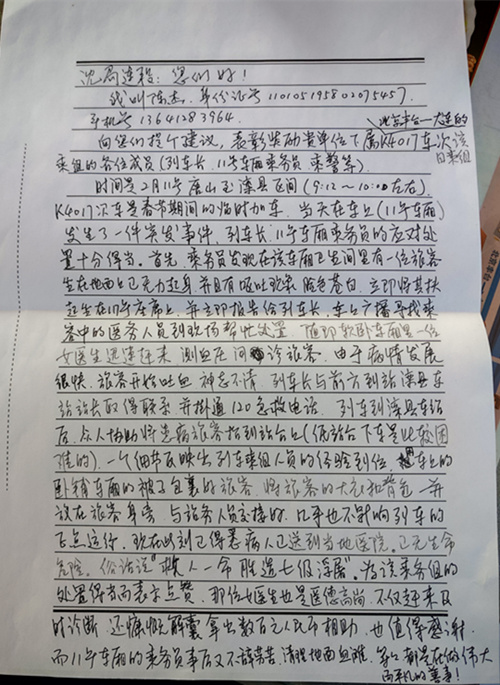 沈局连段：您们好！
我叫陈杰，身份证号110105195802075457.
手机号13641283964.
北京丰台—大连的
向您们提个建议，表彰奖励贵单位下属K4017车次该
日乘组
乘组的各位成员（列车长，11号车厢乘务员 乘警等）.
时间是2月11号唐山至滦县区间（9:12～10:00左右）.
K4017次车是春节期间的临时加车，当天在车上（11号车厢）
发生了一件突发事件，列车长、11号车厢乘务员的应对处
置十分得当。首先，乘务员发现在该车厢卫生间里有一位旅客
坐在地面上已无力起身 并且有呕吐现象 脸色苍白，立即将其扶
起坐在11号座席上，并立即报告给列车长，车上广播寻找乘
客中的医务人员到现场帮忙处置。随即软卧车厢里一位
女医生迅速赶来 测血压 问诊旅客，由于病情发展
很快，旅客开始吐血 神志不清，列车长与前方到站滦县车
站站长取得联系 并拨通120急救电话，列车到滦县车站
后，众人协助将患病旅客抬到站台上（低站台下车是比较困
难的），一个细节反映出列车乘组人员的经验到位，车上的
卧铺车厢的被子包裹好旅客，将旅客的大衣和背包一并
放在旅客身旁，与医务人员交接好，几乎也不影响列车的
正点运行，现在此刻已得悉病人已送到当地医院，已无生命
危险。俗话说"救人一命胜造七级浮屠"，为该乘务组的
处置得当而表示点赞，那位女医生也是医德高尚，不仅赶来及
时诊断，还慷慨解囊 拿出数百元人民币相助，也值得感谢.
而11号车厢的乘务员事后又不辞劳苦，清理地面血滩，等等 都是在做伟大
而平凡的善事！